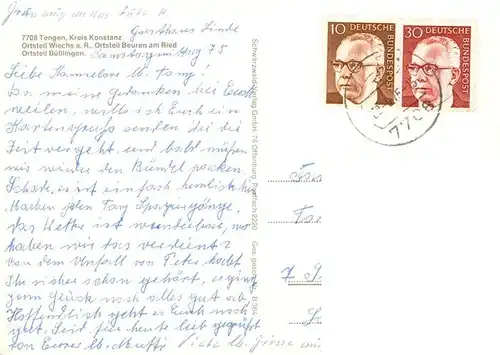 7708 Tengen, Kreis Konstanz
Ortsteil Wiechs a. R., Ortsteil Beuren am Ried
Ortsteil Büßlingen.
Gasthaus Linde
Samstagmittag 75
Liebe Hannelore u. Fam!
Da meine gedanken bei Euch
weilen, will ich Euch ein
Kartengruß senden den die
Zeit vergeht und bald müßen
wir wieder den Bündel packen
Schade, es ist ein fach herrlich hier
Machen jeden Tag Spaziergänge,
das Wetter ist wunderbar, wo
haben wir das verdient?
von dem Unfall von Peter habt
Ihr sicher schon gehört, es ging
zum Glück noch alles gut ab
Hoffentlich geht es Euch noch
gut, Seid für heute lieb gegrüßt
von Eurer lb. Mutti
Viele lb. Grüsse
Schwarzwald-Verlag GmbH, 76 Offenburg, Postfach 2220
Ges. geschützt B 984
10 DEUTSCHE BUNDESPOST
30 DEUTSCHE BUNDESPOST
7708